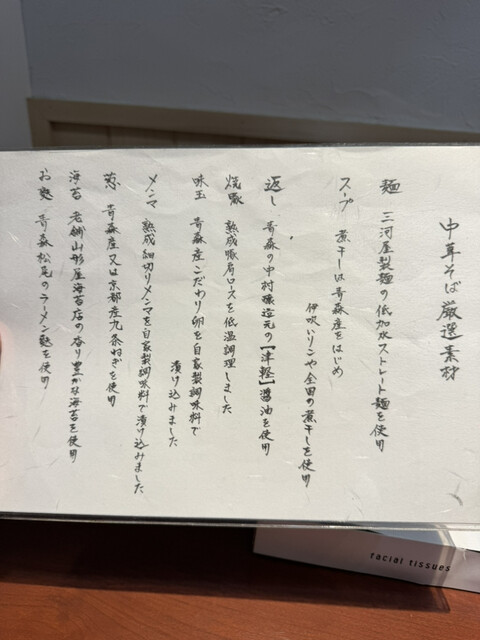 中華そば厳選素材
麺 三河屋製麺の低加水ストレート麺を使用
スープ 煮干しは青森産をはじめ
伊吹いりこや全国の煮干しを使用
返し 青森の中村醸造元の【津軽】醤油を使用
焼豚 熟成豚肩ロースを低温調理しました
味玉 青森産こだわり卵を自家製調味料で
漬け込みました
メンマ 熟成細切りメンマを自家製調味料で漬け込みました
葱 青森産又は京都産九条ねぎを使用
海苔 老舗山形屋海苔店の香り豊かな海苔を使用
お麩 青森松尾のラーメン麩を使用
facial tissues